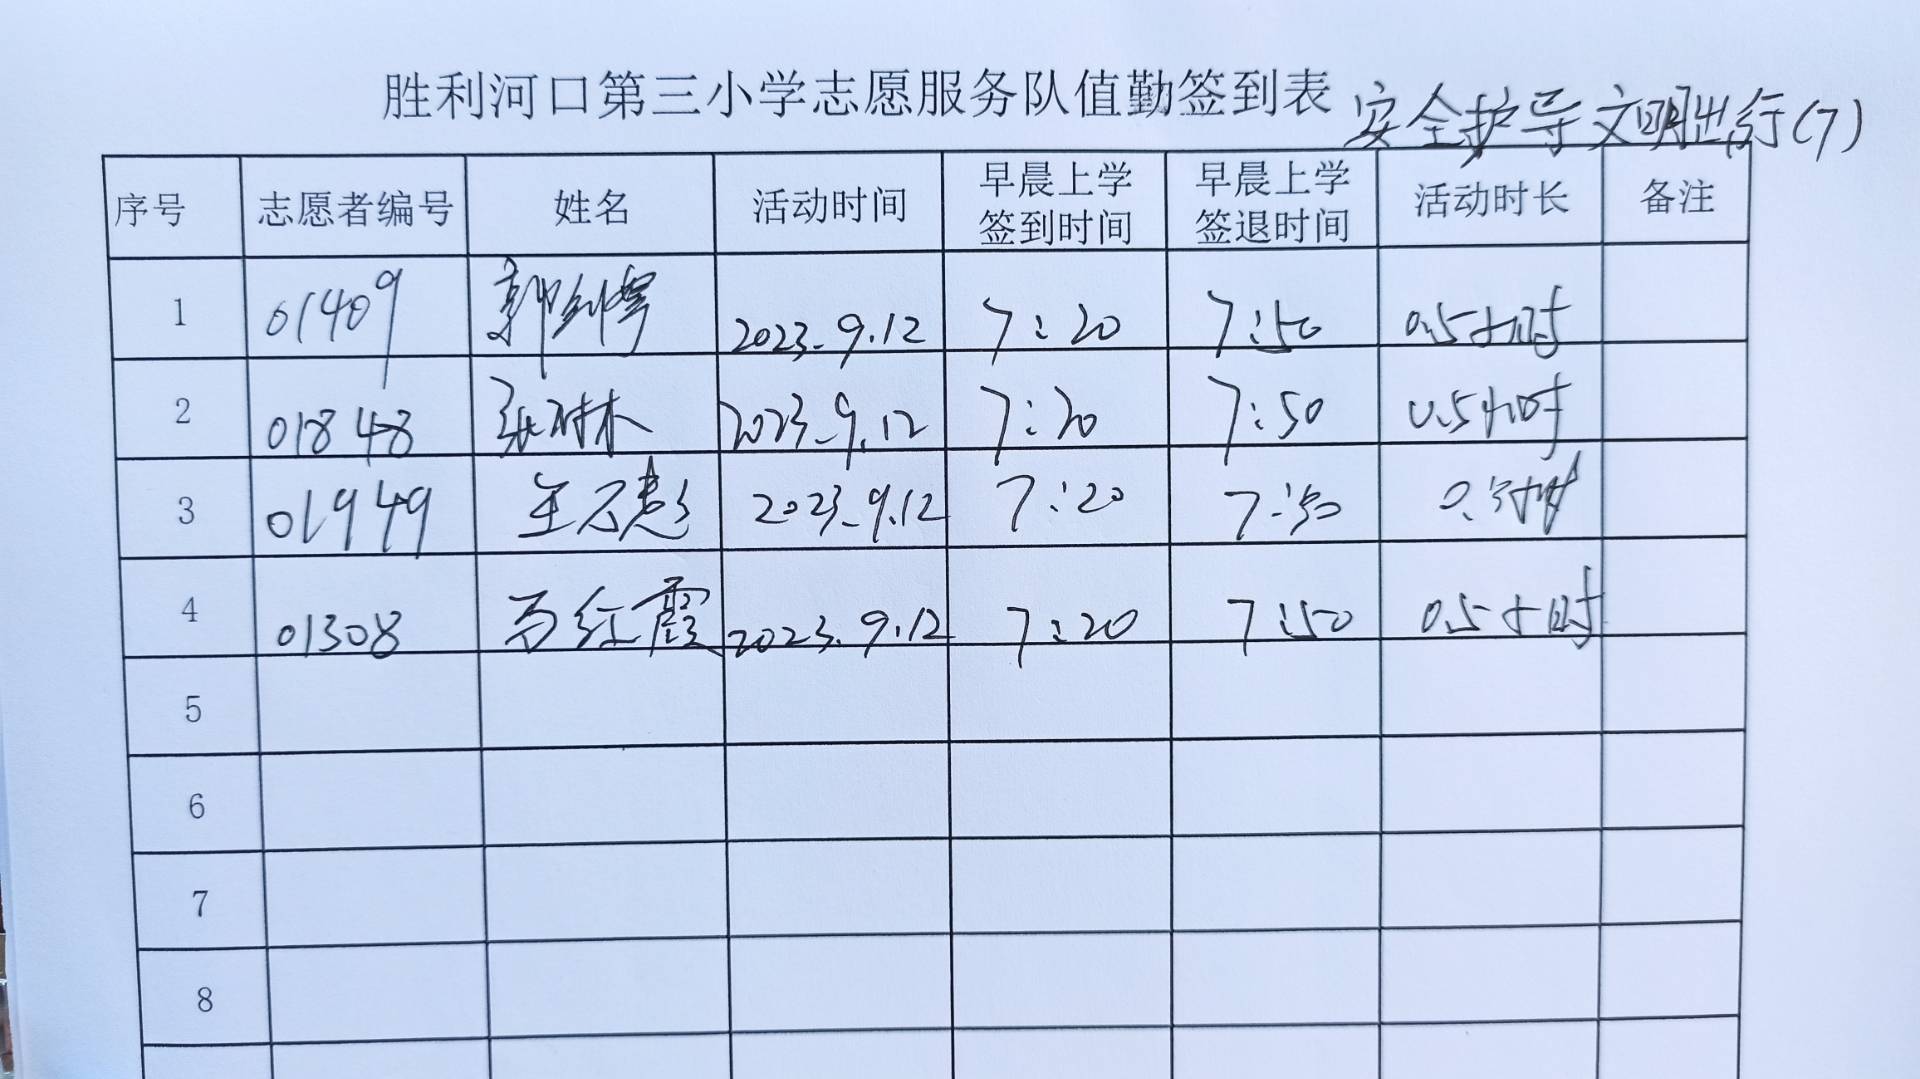 胜利河口第三小学志愿服务队值勤签到表 安全护导文明出行(7)
序号 志愿者编号 姓名 活动时间 早晨上学签到时间 早晨上学签退时间 活动时长 备注
1 01409 2023.9.12 7:20 7:50 0.5小时
2 01848 张树林 2023.9.12 7:20 7:50 0.5小时
3 01949 2023.9.12 7:20 7:50 0.5小时
4 01308 马红霞 2023.9.12 7:20 7:50 0.5小时
5
6
7
8